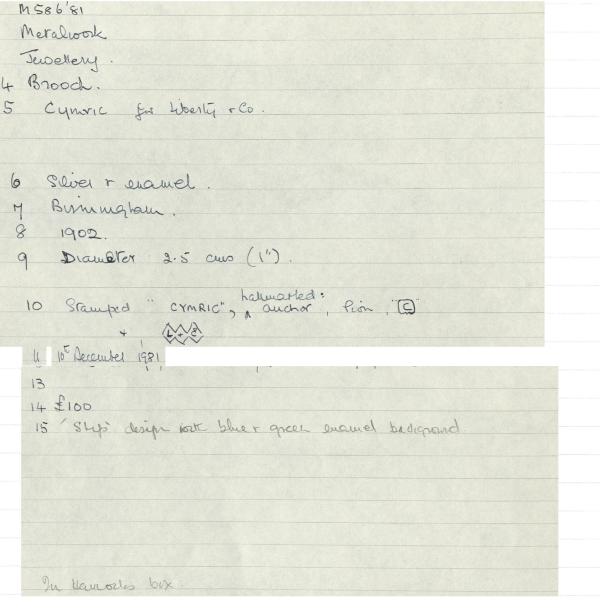 M586'81
Metalwork
Jewellery.
4 Brooch.
5 Cymric for Liberty + Co.
6 Silver + enamel.
7 Birmingham.
8 1902.
9 Diameter 2.5 cms (1").
hallmarked:
10 Stamped "CYMRIC", anchor, lion, "C"
+ L + C
11 10t December 1981
13
14 £100
15 'Ship' design with blue + green enamel background
In Harrods box